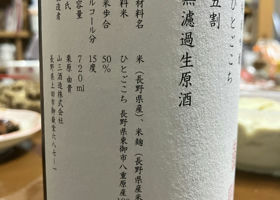 ひとごこち
五割
無濾過生原酒
材料名 米(長野県産)、米麹(長野県産米
料米 ひとごこち 長野県東御市八重原産100
米歩合 50%
ルコール分 15度
容量 720ml
氏 栗原由貴
造者 山三酒造株式会社
長野県上田市御嶽堂六八七ー一